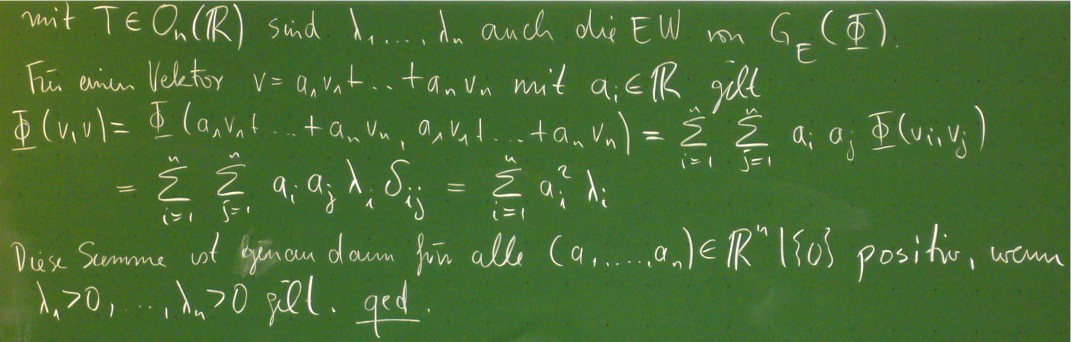 mit T ∈ Oₙ(ℝ) sind λ₁, ..., λₙ auch die EW von G_E(Φ).
Für einen Vektor v = a₁v₁ + ... + aₙvₙ mit aᵢ ∈ ℝ gilt
Φ(v,v) = Φ(a₁v₁ + ... + aₙvₙ, a₁v₁ + ... + aₙvₙ) = ∑_{i=1}^{n} ∑_{j=1}^{n} aᵢ aⱼ Φ(vᵢ,vⱼ)
= ∑_{i=1}^{n} ∑_{j=1}^{n} aᵢ aⱼ λᵢ δᵢⱼ = ∑_{i=1}^{n} aᵢ² λᵢ
Diese Summe ist genau dann für alle (a₁, ..., aₙ) ∈ ℝⁿ \ {0} positiv, wenn
λ₁ > 0, ..., λₙ > 0 gilt. qed.